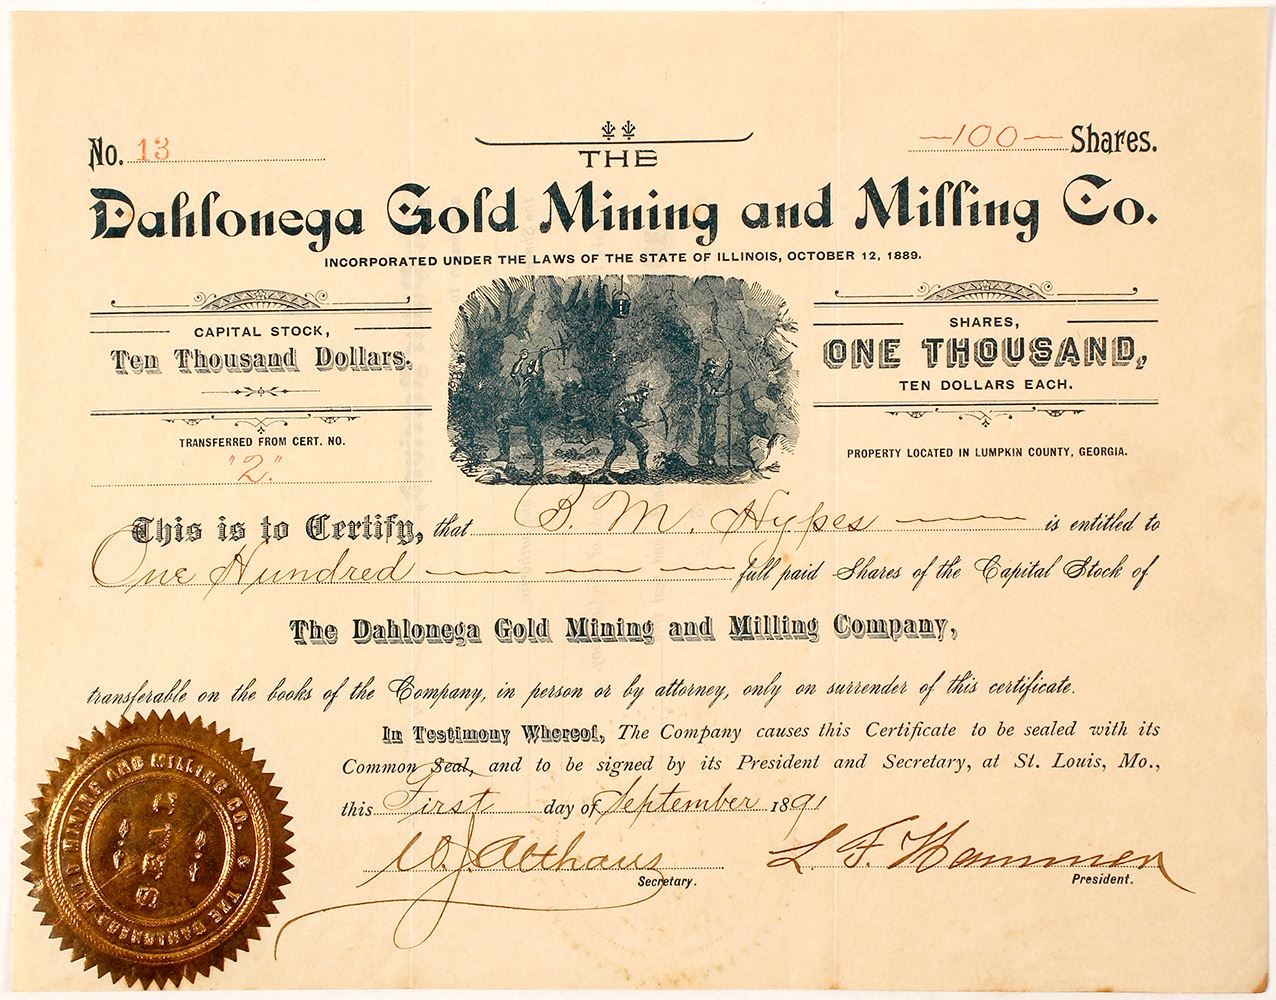 No. 13
—100— Shares.
THE
Dahlonega Gold Mining and Milling Co.
INCORPORATED UNDER THE LAWS OF THE STATE OF ILLINOIS, OCTOBER 12, 1889.
CAPITAL STOCK,
Ten Thousand Dollars.
SHARES,
ONE THOUSAND,
TEN DOLLARS EACH.
TRANSFERRED FROM CERT. NO.
"2."
PROPERTY LOCATED IN LUMPKIN COUNTY, GEORGIA.
This is to Certify, that B. M. Hypes is entitled to
One Hundred full paid Shares of the Capital Stock of
The Dahlonega Gold Mining and Milling Company,
transferable on the books of the Company, in person or by attorney, only on surrender of this certificate.
In Testimony Whereof, The Company causes this Certificate to be sealed with its
Common Seal, and to be signed by its President and Secretary, at St. Louis, Mo.,
this First day of September 1891
W. J. Althaus
Secretary.
L. F. Hammer
President.
THE DAHLONEGA GOLD MINING AND MILLING CO.
SEAL